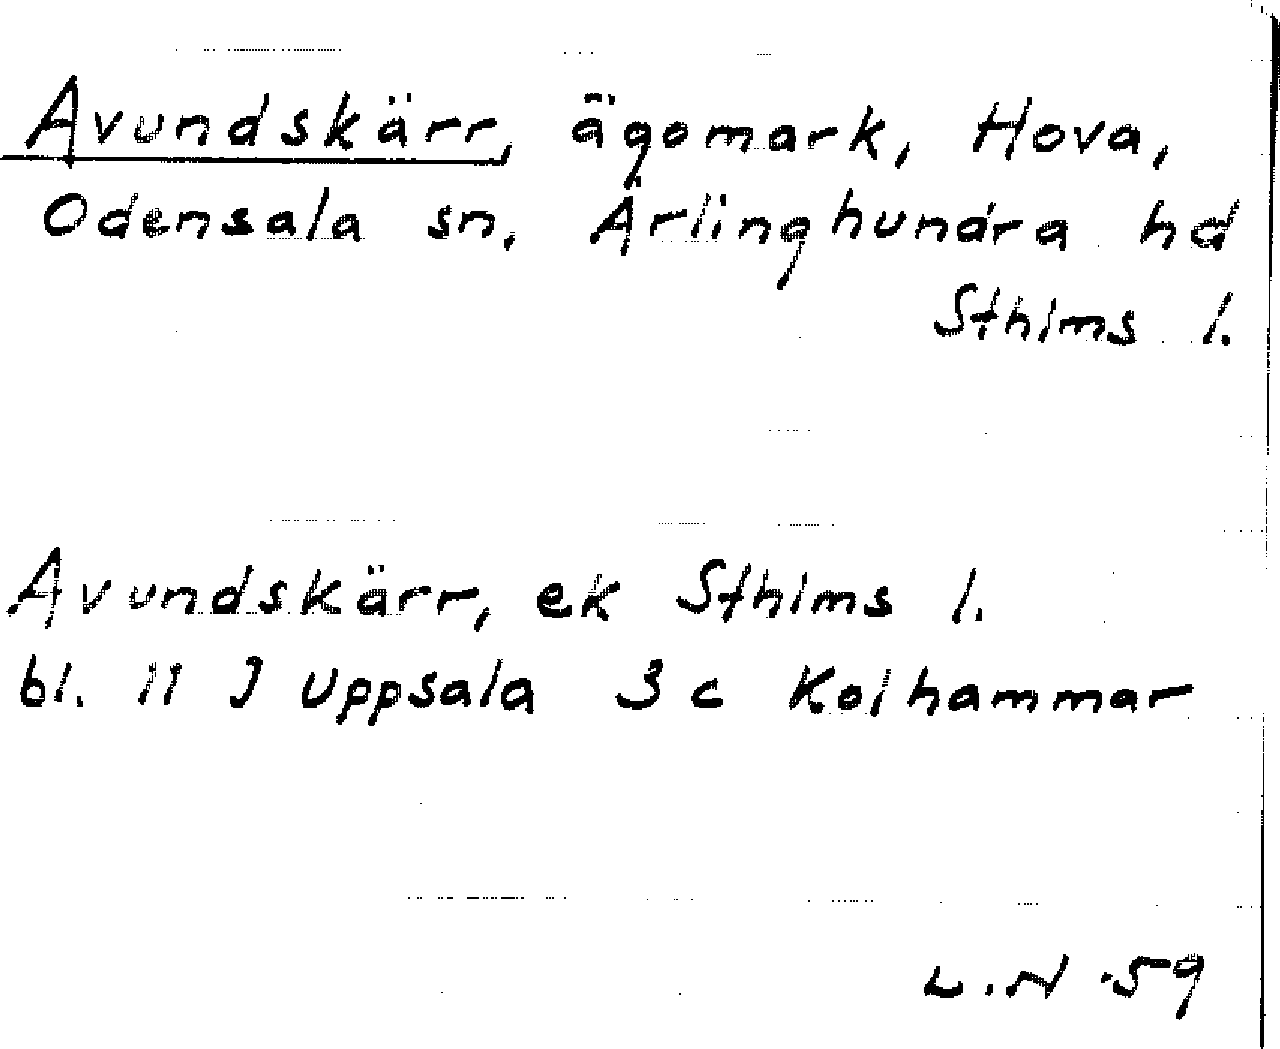 Avundskärr, ägomark, Hova,
Odensala sn, Ärlinghundra hd
Sthlms l.
Avundskärr, ek Sthlms l.
bl. 11 J Uppsala 3 c Kolhammar
L.N -59